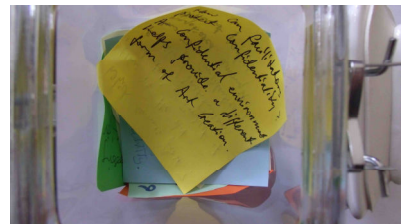 How can facilitators
promote confidentiality?
A confidential environment
helps provide a different
form of Art Creation.